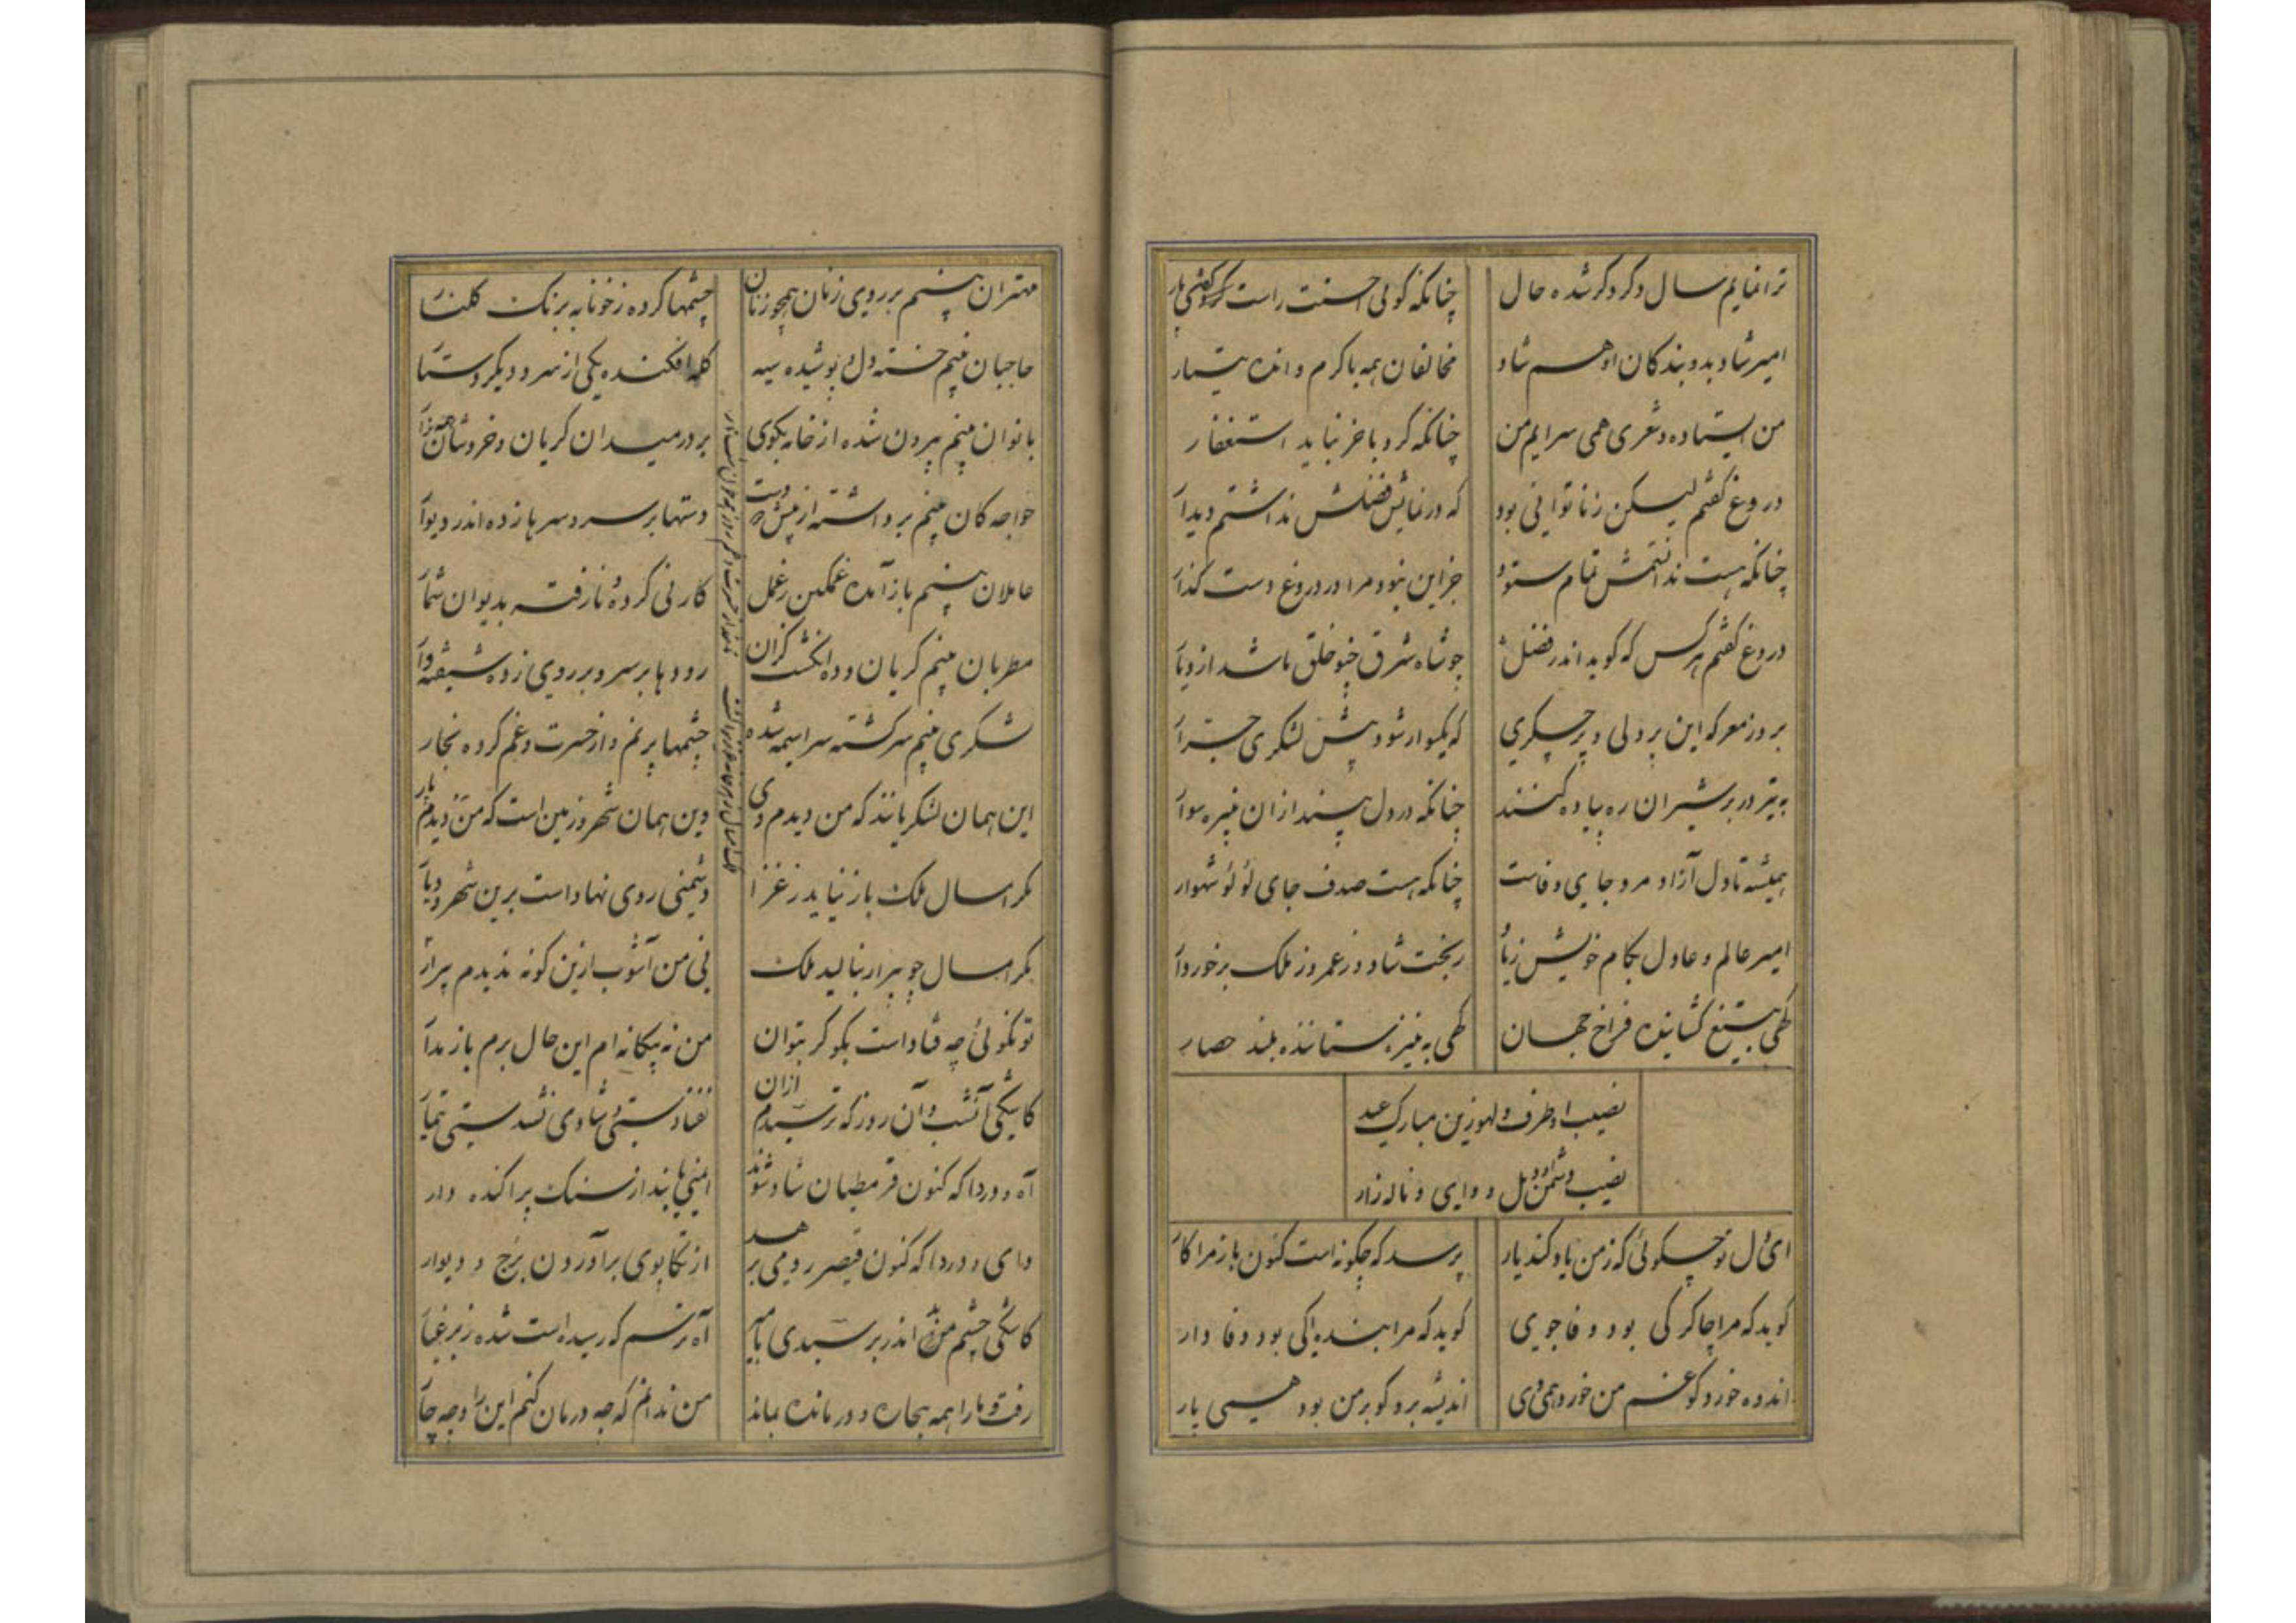 ترا نمایم سال دگر دگر شده حال چنانکه گوئی احسنت راست کردی کار
امیر شاد بدو بندگان او هم شاد مخالفان همه با کرم و انده تیمار
من ایستاده و شعری همی سرایم من چنانکه کرد باخر نباید استغفار
دروغ گفتم لیکن ز ناتوانی بود که در نمایش فضلش نداشتم دیدار
چنانکه هست ندانستمش تمام ستود جز این نبود مرا در دروغ دست گذار
دروغ گفتم هر کس که گوید اندر فضل چو شاه شرق چنو خلق باشد از دیار
بروز معرکه این پر دلی و پر جگری که یکسوار شود پیش لشکری جرار
به تیر در بر شیران ره پیاده کنند چنانکه در دل بیند ازان نبیره سوار
همیشه تا دل آزاد مرد جای وفاست چنانکه هست صدف جای لؤلؤ شهوار
امیر عالم و عادل بکام خویش زیاد ز بخت شاد و ز عمر و ز ملک برخوردار
گهی بتیغ گشاینده فراخ جهان گهی به نیزه ستاننده بلند حصار
نصیب او طرف و لهو زین مبارک عید
نصیب دشمن او ویل و وای و ناله زار
ای دل تو چگوئی که ز من یاد کند یار پرسد که چگونه است کنون یار مرا کار
گوید که مرا چاکر کی بود وفا جوی گوید که مرا بنده کی بود وفا دار
اندوه خورد گو غم من خورد همی وی اندیشه برد گو بر من بود همی یار
مهتران بینم بر روی زنان همچو زنان چشمها کرده ز خونابه برنگ گلنار
حاجبان بینم خسته دل و پوشیده سیه کله افکنده یکی از سر و دیگر دستار
بانوان بینم بیرون شده از خانه بکوی بر در میدان گریان و خروشان همه زار
خواجگان بینم برداشته از پیش دوات دستها بر سر و سرها زده اندر دیوار
عاملان بینم باز آمده غمگین ز عمل کار نی کرده و نارفته بدیوان شمار
مطربان بینم گریان و ده انگشت گزان رودها بر سر و بر روی زده شیفته وار
لشکری بینم سرگشته سراسیمه شده چشمها پر نم و از حسرت و غم کرده نجار
این همان لشکریانند که من دیدم دی وین همان شهر و زمین است که من دیدم پار
مگر امسال ملک باز نیاید ز غزا دشمنی روی نهاد است برین شهر و دیار
مگر امسال چو پیرار بنالید ملک نی من آشوب ازین گونه ندیدم پیرار
تو نگوئی چه فتاد است بگو گر بتوان من نه بیگانه ام این حال برم باز مدار
کاشکی آنشب و آن روز که ترسیدم ازان نفتادستی و شادی نشدستی تیمار
آه و دردا که کنون قرمطیان شاد شوند ایمنی یابند از سنگ پراکنده و دار
وای و دردا که کنون قیصر رومی برهد از تکاپوی برآوردن برج و دیوار
کاشکی چشم بد اندر نرسیدی بامیر آه ترسم که رسید است شده زیر غبار
رفت و ما را همه بیچاره و درمانده بماند من ندانم که چه درمان کنم این را و چه چار